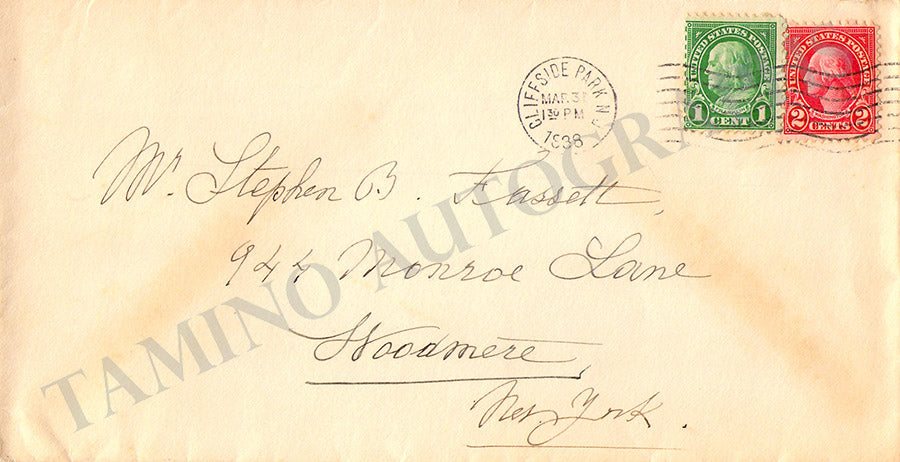 UNITED STATES POSTAGE
FRANKLIN
1 CENT 1
UNITED STATES POSTAGE
WASHINGTON
2 CENTS 2
CLIFFSIDE PARK N.J.
MAR 31
1 30 PM
1938
Mr. Stephen B. Fassett,
944 Monroe Lane
Woodmere,
New York.
TAMINO AUTOGR